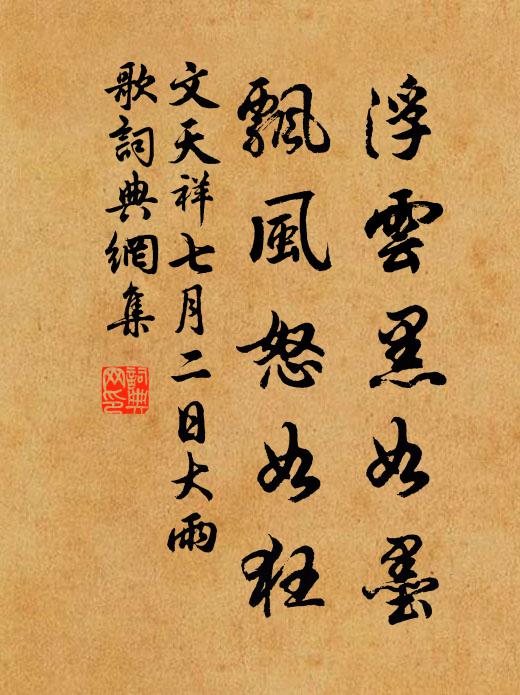 浮雲黑如墨
飄風怒如狂
文天祥七月二日大雨
歌詞典網集
詞典網印